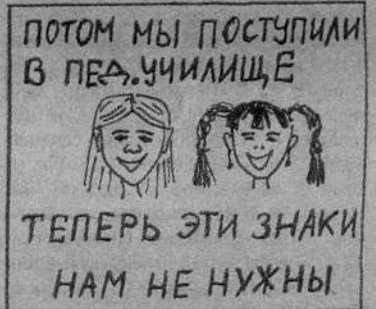 ПОТОМ МЫ ПОСТУПИЛИ
В ПЕД.УЧИЛИЩЕ
ТЕПЕРЬ ЭТИ ЗНАКИ
НАМ НЕ НУЖНЫ